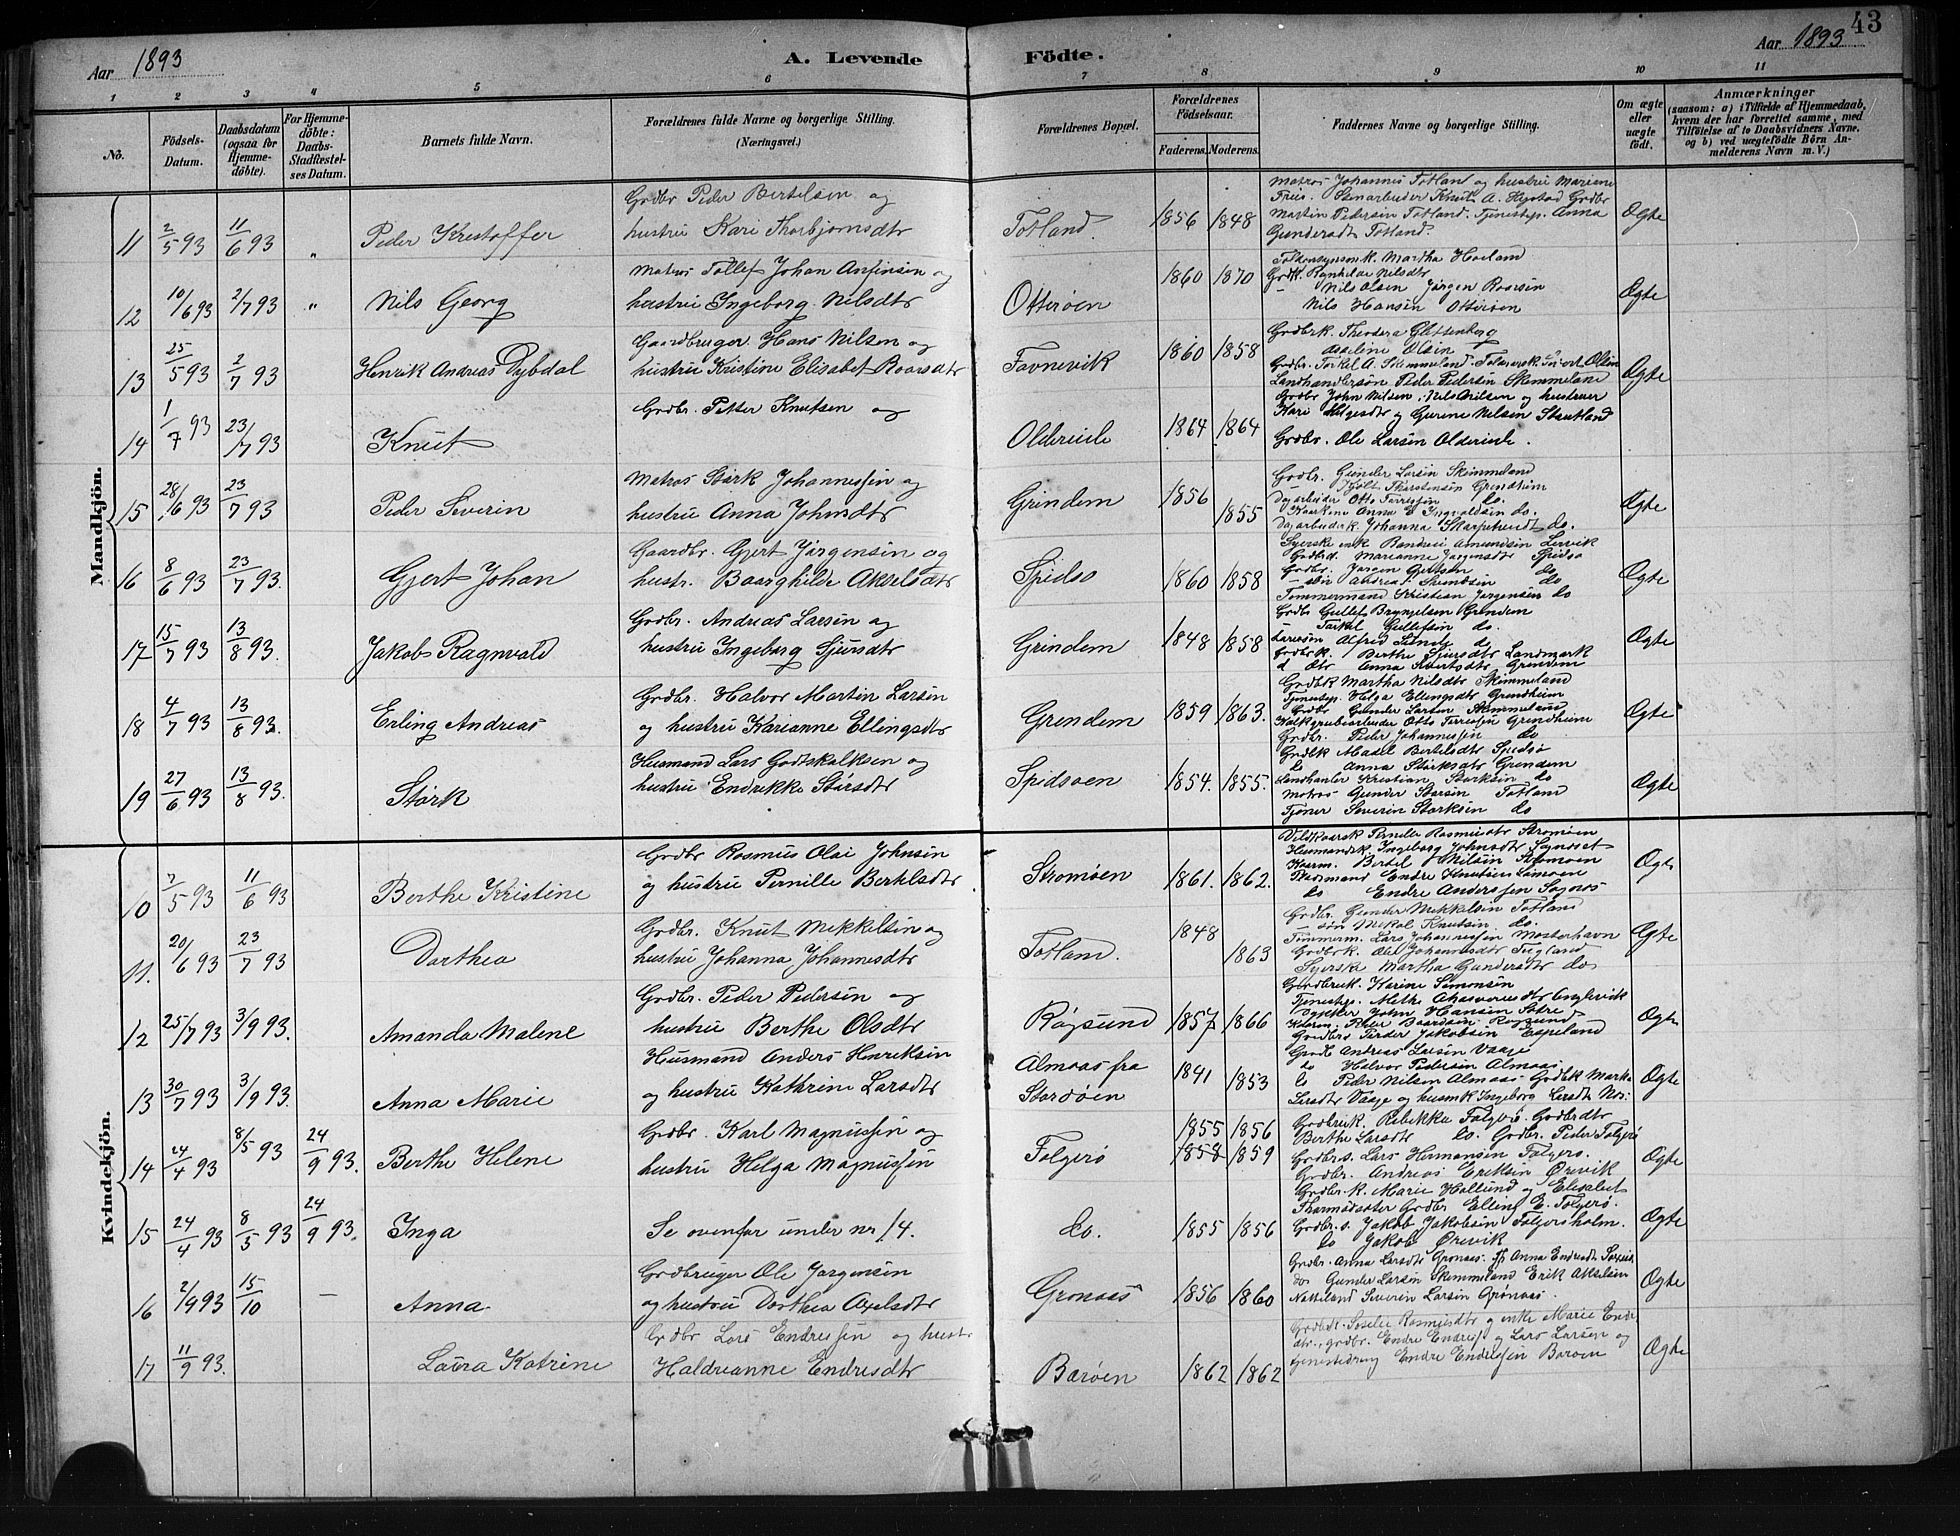 43
Aar 1893
A. Levende Födte.
Aar 1893
1 2 3 4 5 6 7 8 9 10 11
No.
Födsels-Datum.
Daabsdatum (ogsaa for Hjemmedöbte).
For Hjemmedöbte: Daabs-Stadfæstelses Datum.
Barnets fulde Navn.
Forældrenes fulde Navne og borgerlige Stilling.
(Næringsvei.)
Forældrenes Bopæl.
Forældrenes Födselsaar.
Faderens. Moderens.
Faddernes Navne og borgerlige Stilling.
Om ægte eller uægte födt.
Anmærkninger
(saasom: a) i Tilfælde af Hjemmedaab, hvem der har forrettet samme, med Tilföielse af to Daabsvidners Navne. og b) ved uægtefödte Börn Anmelderens Navn m. V.)
Mandkjön.
11 2/5 93 11/6 93 " Peder Kristoffer
Grdbr Peder Bertelsen og
hustru Kari Thorbjornsdtr
Totland. 1856 1848
Matros Johannes Totland og hustru Mariane
Martin Pedersen Totland. Tjenestep. Anna
Gundersdt Totland.
Ægte
12 10/6 93 2/7 93 " Nils Georg
Matros Tollef Johan Anfinsen og
hustru Ingeborg Nilsdtr
Otteröen 1860 1870
Martha Hovland
Godk. Ragnhilde Nilsdtr
Nils Olsen Jörgen Roarsen
Nils Hansen Otteröen
Ægte
13 25/5 93 2/7 93 Henrik Andreas Dybdal
Gaardbruger Hans Nilsen og
hustru Kristine Elisabet Roarsdtr
Favnevik 1860 1858
Grdbrk. Theodora Glettenberg
Olsen
Landhandlersön Peder Pedersen Skimmeland
Ægte
14 1/7 93 23/7 93 Knut
Grdbr. Petter Knutsen og
Oldereide 1864 1864
Grdbr John Nilsen, Nils Nilsen og hustruer
Kari Helgesdtr og Gurine Nilsen Stautland
Grdbr. Ole Larsen Oldereide.
15 28/6 93 23/7 93 Peder Severin
Matros Störk Johannessen og
hustru Anna Johnsdtr
Grindem 1856 1855
Grdbr. Gunder Larsen Skimmeland
Thorstensen Grendheim
Dagarbeider Otto Terresen do.
Anna E Ingvaldsen do.
Johanna do.
Ægte
16 8/6 93 23/7 93. Gjert Johan
Gaardbr. Gjert Jörgensen og
hustr. Baarghilde Akselsdtr
Spidsö 1860 1858
Syerske enk Amundsen Lervik
Marianne Jörgensdtr Spidsö
Grdbr. Jörgen Gjertsen do
sön Andreas do
Tömmermand Kristian Jörgensen do
Ægte
17 15/7 93 13/8 93. Jakob Ragnvald
Grdbr. Andreas Larsen og
hustru Ingeborg Sjursdtr
Grindem 1848 1858
Grdbr Gullef Brynjelsen Grendem
Torkel Gullefsen do.
Alfred do
Grdbrk. Berthe Sjursdtr Landmark
Anna Grendem
Ægte
18 4/7 93 13/8 93. Erling Andreas
Grdbr. Halvor Martin Larsen
og hustru Karianne Ellingsdtr
Grendem 1859 1863.
Grdbk Martha Nilsdtr Skimmeland
Tjenestep. Helga Ellingsdtr Grendheim
Grdbr Gunder Larsen Skimmeland
Kalkgrubearbeider Otto Terresen Grendheim
Grdbr. Peder Johannessen do
Ægte
19 27/6 93 13/8 93. Störk
Husmand Lars Godtskalksen og
hustru Endrikke Störsdtr
Spidsöen 1854. 1855.
Grdbk Madel Bertelsdtr Spidsö
do Anna Störksdtr Grendem
Landhanler Kristian Störksen do
Matros Gunder Totland
Tjener Severin Störksen do
Ægte
Kvindekjön.
10 7/5 93 11/6 93 Berthe Kristine
Grdbr Rasmus Olai Johnsen
og hustru Pernille Bertelsdtr
Stromöen 1861. 1862.
Pernille Rasmusdtr Stromöen
Husmandsk. Ingeborg Johnsdtr
Bertel Nilsen Stromöen
Endre Knutsen
do Endre Andersen
Ægte
11. 20/6 93 23/7 93 Dorthea
Grdbr. Knut Mekkelsen og
hustru Johanna Johannesdtr
Totland. 1848 1863
Grdbr. Gunder Mekkelsen Totland
sön Mekal Knutsen do.
Tömmerm. Lars Johannessen Mosterhavn
Syerske Martha Gundersdtr do
Ægte
12 25/7 93 3/9 93. Amanda Malene
Grdbr. Peder Pedersen og
hustru Berthe Olsdtr
Rögsund 1857 1866
Grdbruk. Karine Simonsen
John Hansen
Peder Baardsen Rögsund
Peder Jakobsen Espeland
Ægte
13 30/7 93 3/9 93. Anna Marie
Husmand Anders Henriksen
og hustru Kathrine Larsdtr
Almaas fra Stordöen 1841 1853
Grdb Andreas Larsen Vaage
do Halvor Pedersen Almaas
do Peder Nilsen Almaas Grdbk Marka
Larsdt Vaage og husmk Ingeborg Larsdt
Ægte
14 24/4 93 8/5 93 24/9 93. Berthe Helene
Grdbr. Karl Magnussen og
hustru Helga Magnussen
Folgerö 1855 1856
1858 1859
Grdbruk. Rebekka Folgerö. Grdbrdtr
Berthe Larsdtr do. Grdbr. Peder Folgerö
Grdbrs. Lars Hermansen Folgerö.
Grdbr. Andreas Eriksen Ørevik
Ægte
15 24/4 93 8/5 93 24/9 93. Inga
Se ovenfor under nr 14.
do. 1855 1856
Grdbr.k. Marie Hollund og Elisabet
Grdbr Elling E. Folgerö.
Grdbr.s. Jakob Jakobsen Folgeröholm.
do Jakob Ørevik
Ægte
16 2/9 93 15/10 — Anna
Grdbruger Ole Jörgensen
og hustru Dorthea Axelsdtr
Gronaas 1856 1860
Grdbr. Anna Larsdt Gronaas. Anna Endresdt
Gunder Larsen Skimmeland Erik Akselsen
Natteland Severin Larsen Gronaas
Ægte
17 11/9 93. Laura Katrine
Grdbr Lars Endresen og hustr
Haldrianne Endresdtr
Baröen 1862 1862
Rasmusdtr og enke Marie Endr
dtr., grdbr. Endre Endres og Lars Larsen og
Endre Endresen Baroen
Ægte